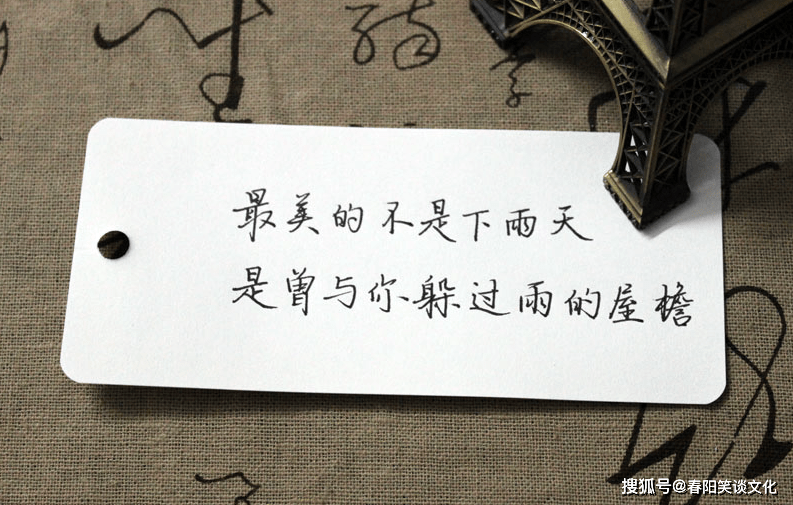 最美的不是下雨天
是曾与你躲过雨的屋檐
搜狐号@春阳笑谈文化